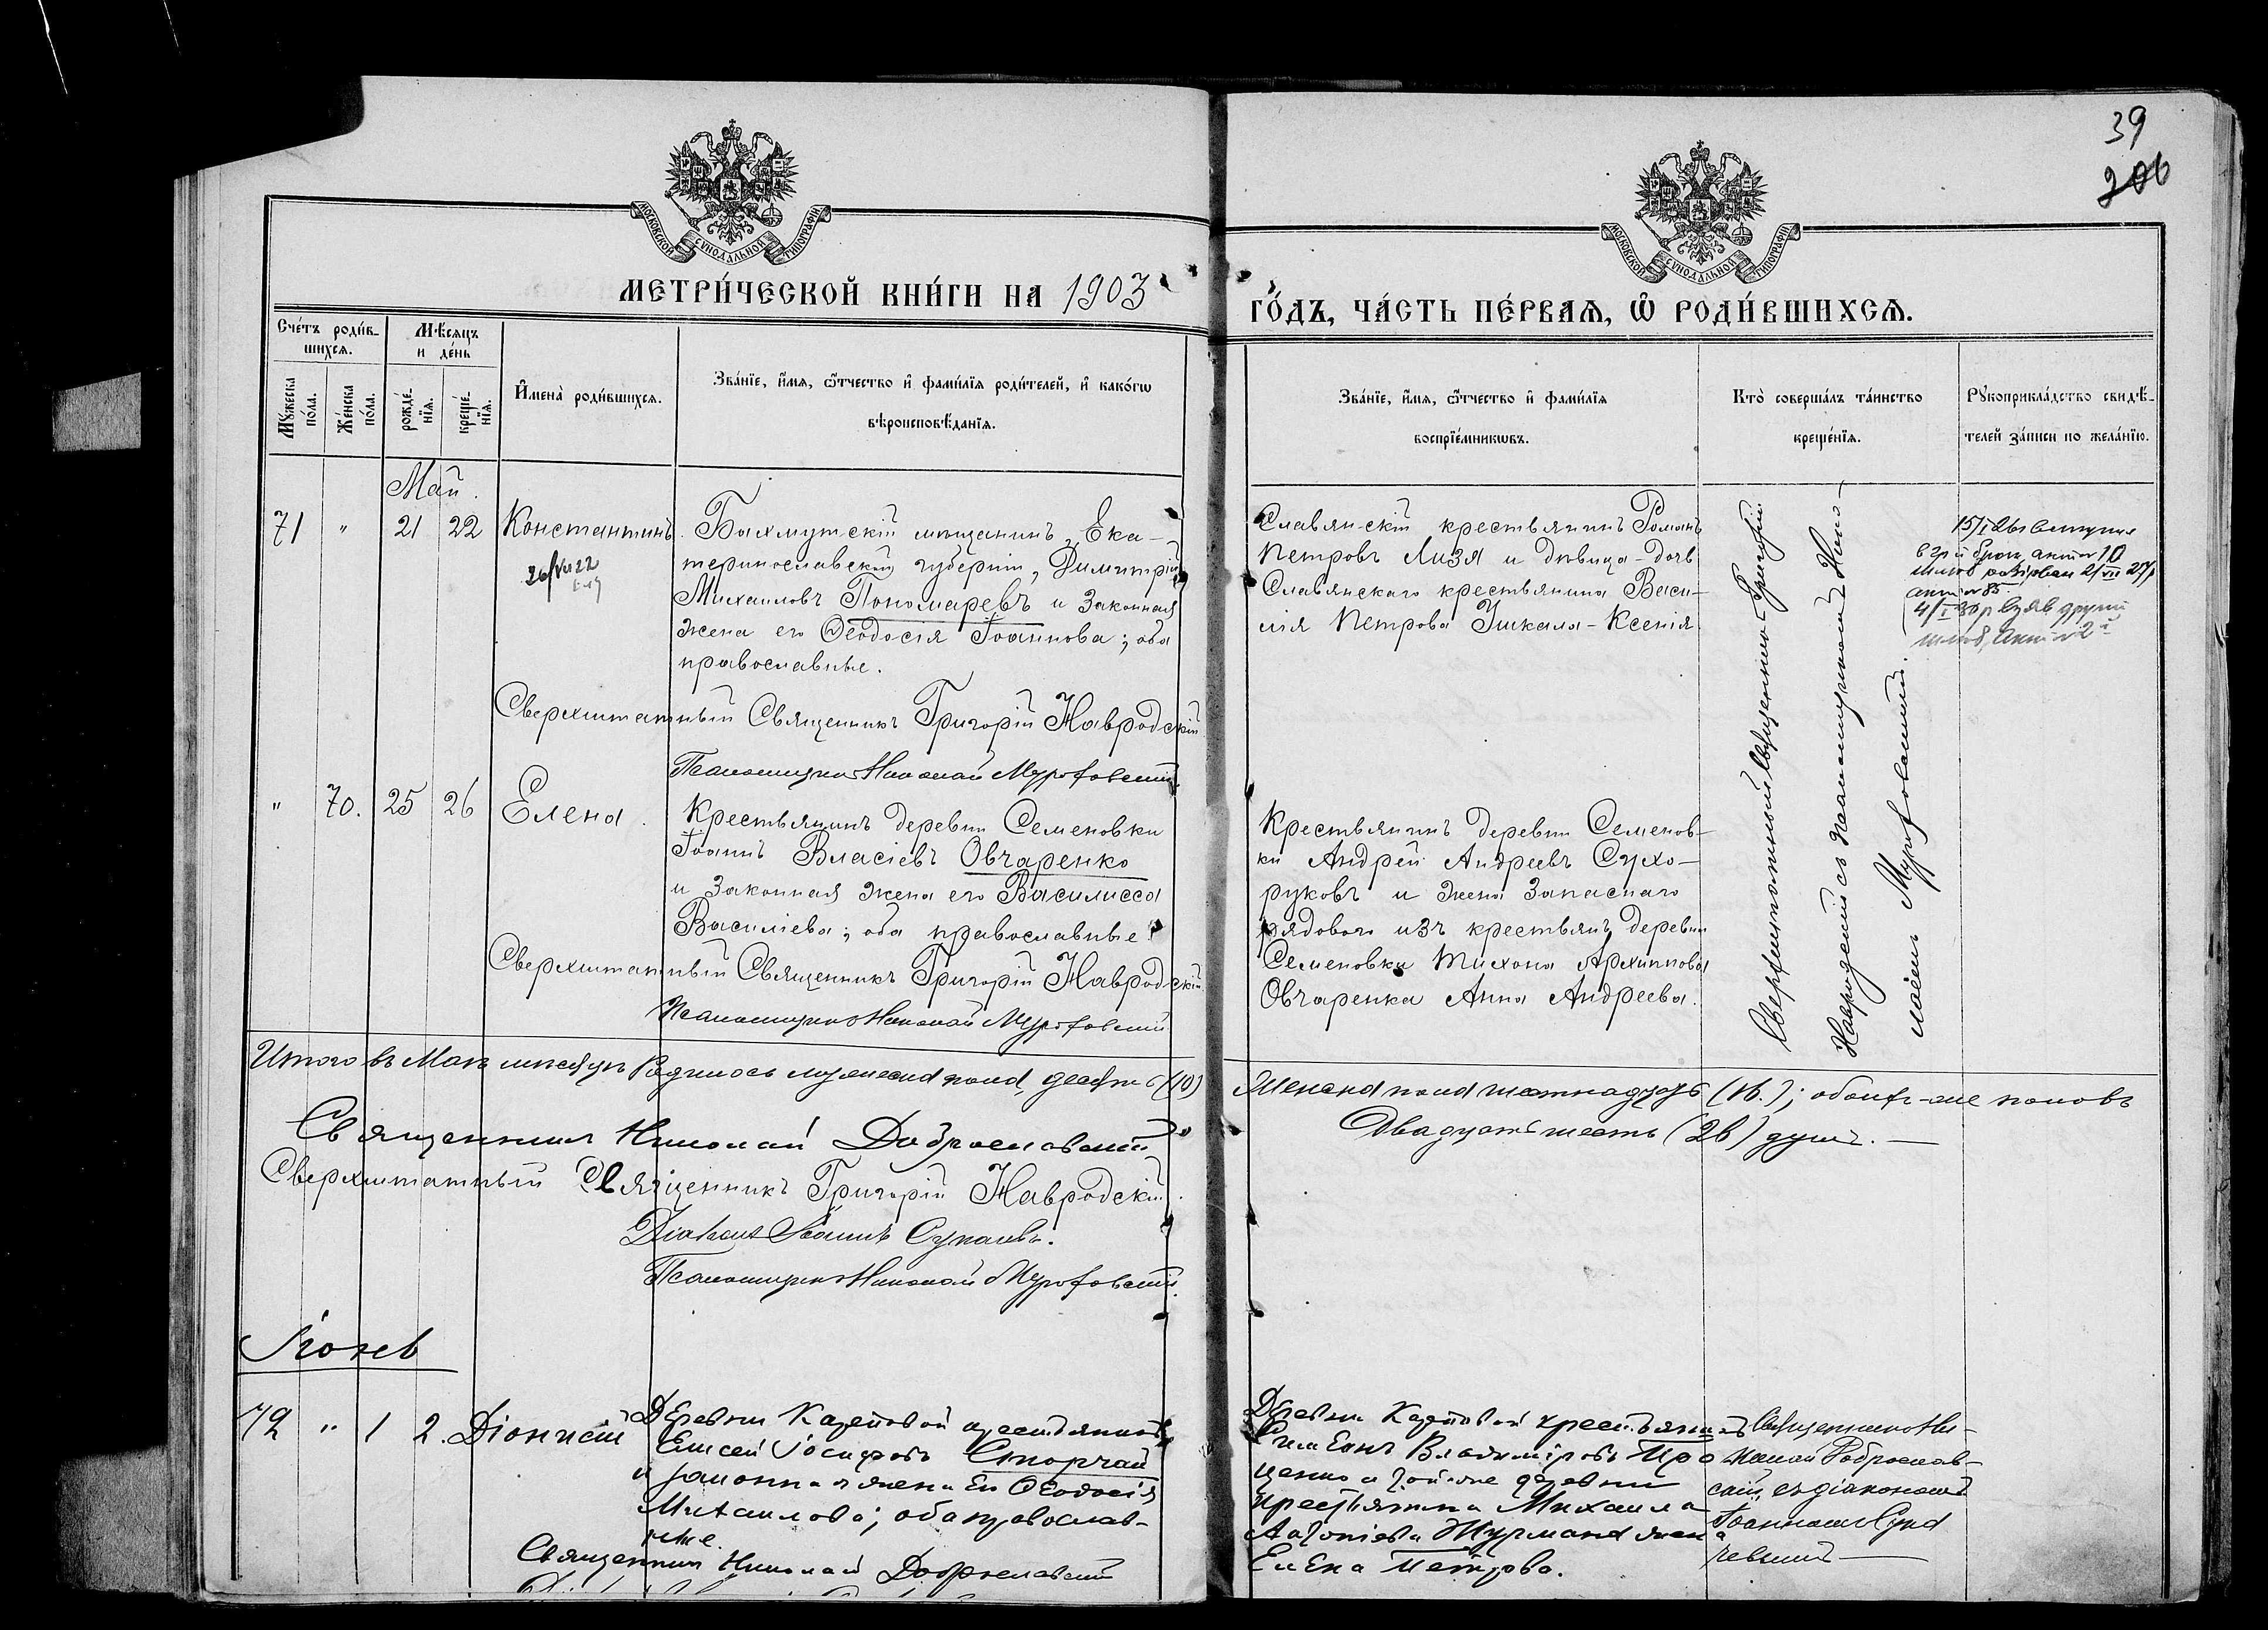 39
206
МОСКОВСКОЙ СѴНОДАЛЬНОЙ ТИПОГРАФІИ
МОСКОВСКОЙ СѴНОДАЛЬНОЙ ТИПОГРАФІИ
МЕТРИ́ЧЕСКОЙ КНИ́ГИ НА 1903
ГО́ДЪ, ЧА́СТЬ ПЕ́РВАѦ, Ѡ҆ РОДИ́ВШИХСѦ.
Сче́тъ роди́в-
шихсѧ.
Мѣ́сѧцъ
и де́нь
Мꙋ́жеска по́ла.
Же́нска по́ла.
рожде́-
нїѧ.
креще́-
нїѧ.
И҆мена̀ роди́вшихсѧ.
Зва́нїе, и҆́мѧ, ѻ҆́тчество и҆ фами́лїѧ роди́телей, и҆ како́гѡ
вѣроисповѣ́данїѧ.
Зва́нїе, и҆́мѧ, ѻ҆́тчество и҆ фами́лїѧ
воспрїе́мникѡвъ.
Кто̀ соверша́лъ та́инство
креще́нїѧ.
Рꙋкоприкла́дство свидѣ́-
телей за́писи по жела́нїю.
Май.
71 " 21 22 Константинъ.
26/VII 22
Бахмутскій мѣщанинъ, Ека-
теринославской губерніи, Димитрій
Михаиловъ Пономаревъ и законная
жена его Ѳеодосія Іоаннова; оба
православные.
Сверхштатный Священникъ Григорій Навродскій
Псаломщикъ Николай Мурофовский
Славянскій крестьянинъ Романъ
Петровъ Лизя и дѣвица-дочь
Славянскаго крестьянина Васи-
лія Петрова Ушкала-Ксенія.
15/I вступив
в 2й брак, акт № 10
шлюб розірван 2/VII 27р
акт № 85.
4/I 30р взяв другий
шлюб, акт № 2
" 70. 25 26 Елена.
Крестьянинъ деревни Семеновки
Іоаннъ Власіевъ Овчаренко
и законная жена его Василисса
Василіева; оба православные.
Сверхштатный Священникъ Григорій Навродскій
Псаломщикъ Николай Мурофовский
Крестьянинъ деревни Семенов-
ки Андрей Андреевъ Сухо-
руковъ и жена запаснаго
рядового изъ крестьянъ деревни
Семеновки Тихона Архиппова
Овчаренка Анна Андреева.
Сверхштатный священникъ Григорій
Навродскій съ псаломщикомъ Нико-
лаемъ Мурофовскимъ.
Итого въ Маѣ мѣсяцѣ родилось мужеска пола десять (10)
Женска пола шестнадцать (16.); обоихъ-же половъ
Двадцать шесть (26) душъ. —
Священникъ Николай Доброславскій
Сверхштатный Священникъ Григорій Навродскій.
Діаконъ Іоаннъ
Псаломщикъ Николай Мурофовский.
Іюнь
72 " 1 2. Діонисій
Деревни Карповой крестьянинъ
Елисей Іосифовъ Сторчай
и законная жена его Ѳеодосія
Михаилова; оба православ-
ные.
Священникъ Николай Доброславскій
Деревни Карповой крестьянинъ
Симеонъ Владиміровъ Про
ценко и той-же деревни
крестьянина Михаила
Антоніева Журмана жена
Елена Петрова.
Священникъ Ни-
колай Доброслав-
скій съ діакономъ
Іоанномъ